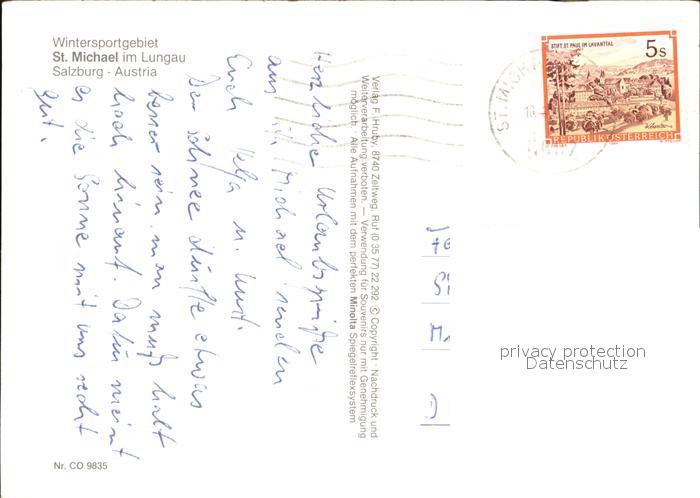 Wintersportgebiet
St. Michael im Lungau
Salzburg - Austria
STIFT ST. PAUL IM LAVANTTAL
5 s
REPUBLIK ÖSTERREICH
ST. MICHA
Herzliche Urlaubsgrüße
aus St. Michael senden
Euch Helga u. Kurt.
Der Schnee dürfte etwas
besser sein. man muß halt
hoch hinauf. Dafür meint
es die Sonne mit uns recht
gut.
Verlag F. Hruby, 8740 Zeltweg, Ruf (0 35 77) 22 292 © Copyright - Nachdruck und
Weiterverarbeitung verboten. — Verwendung für Souvenirs nur mit Genehmigung
möglich. Alle Aufnahmen mit dem perfekten Minolta Spiegelreflexsystem
privacy protection
Datenschutz
Nr. CO 9835